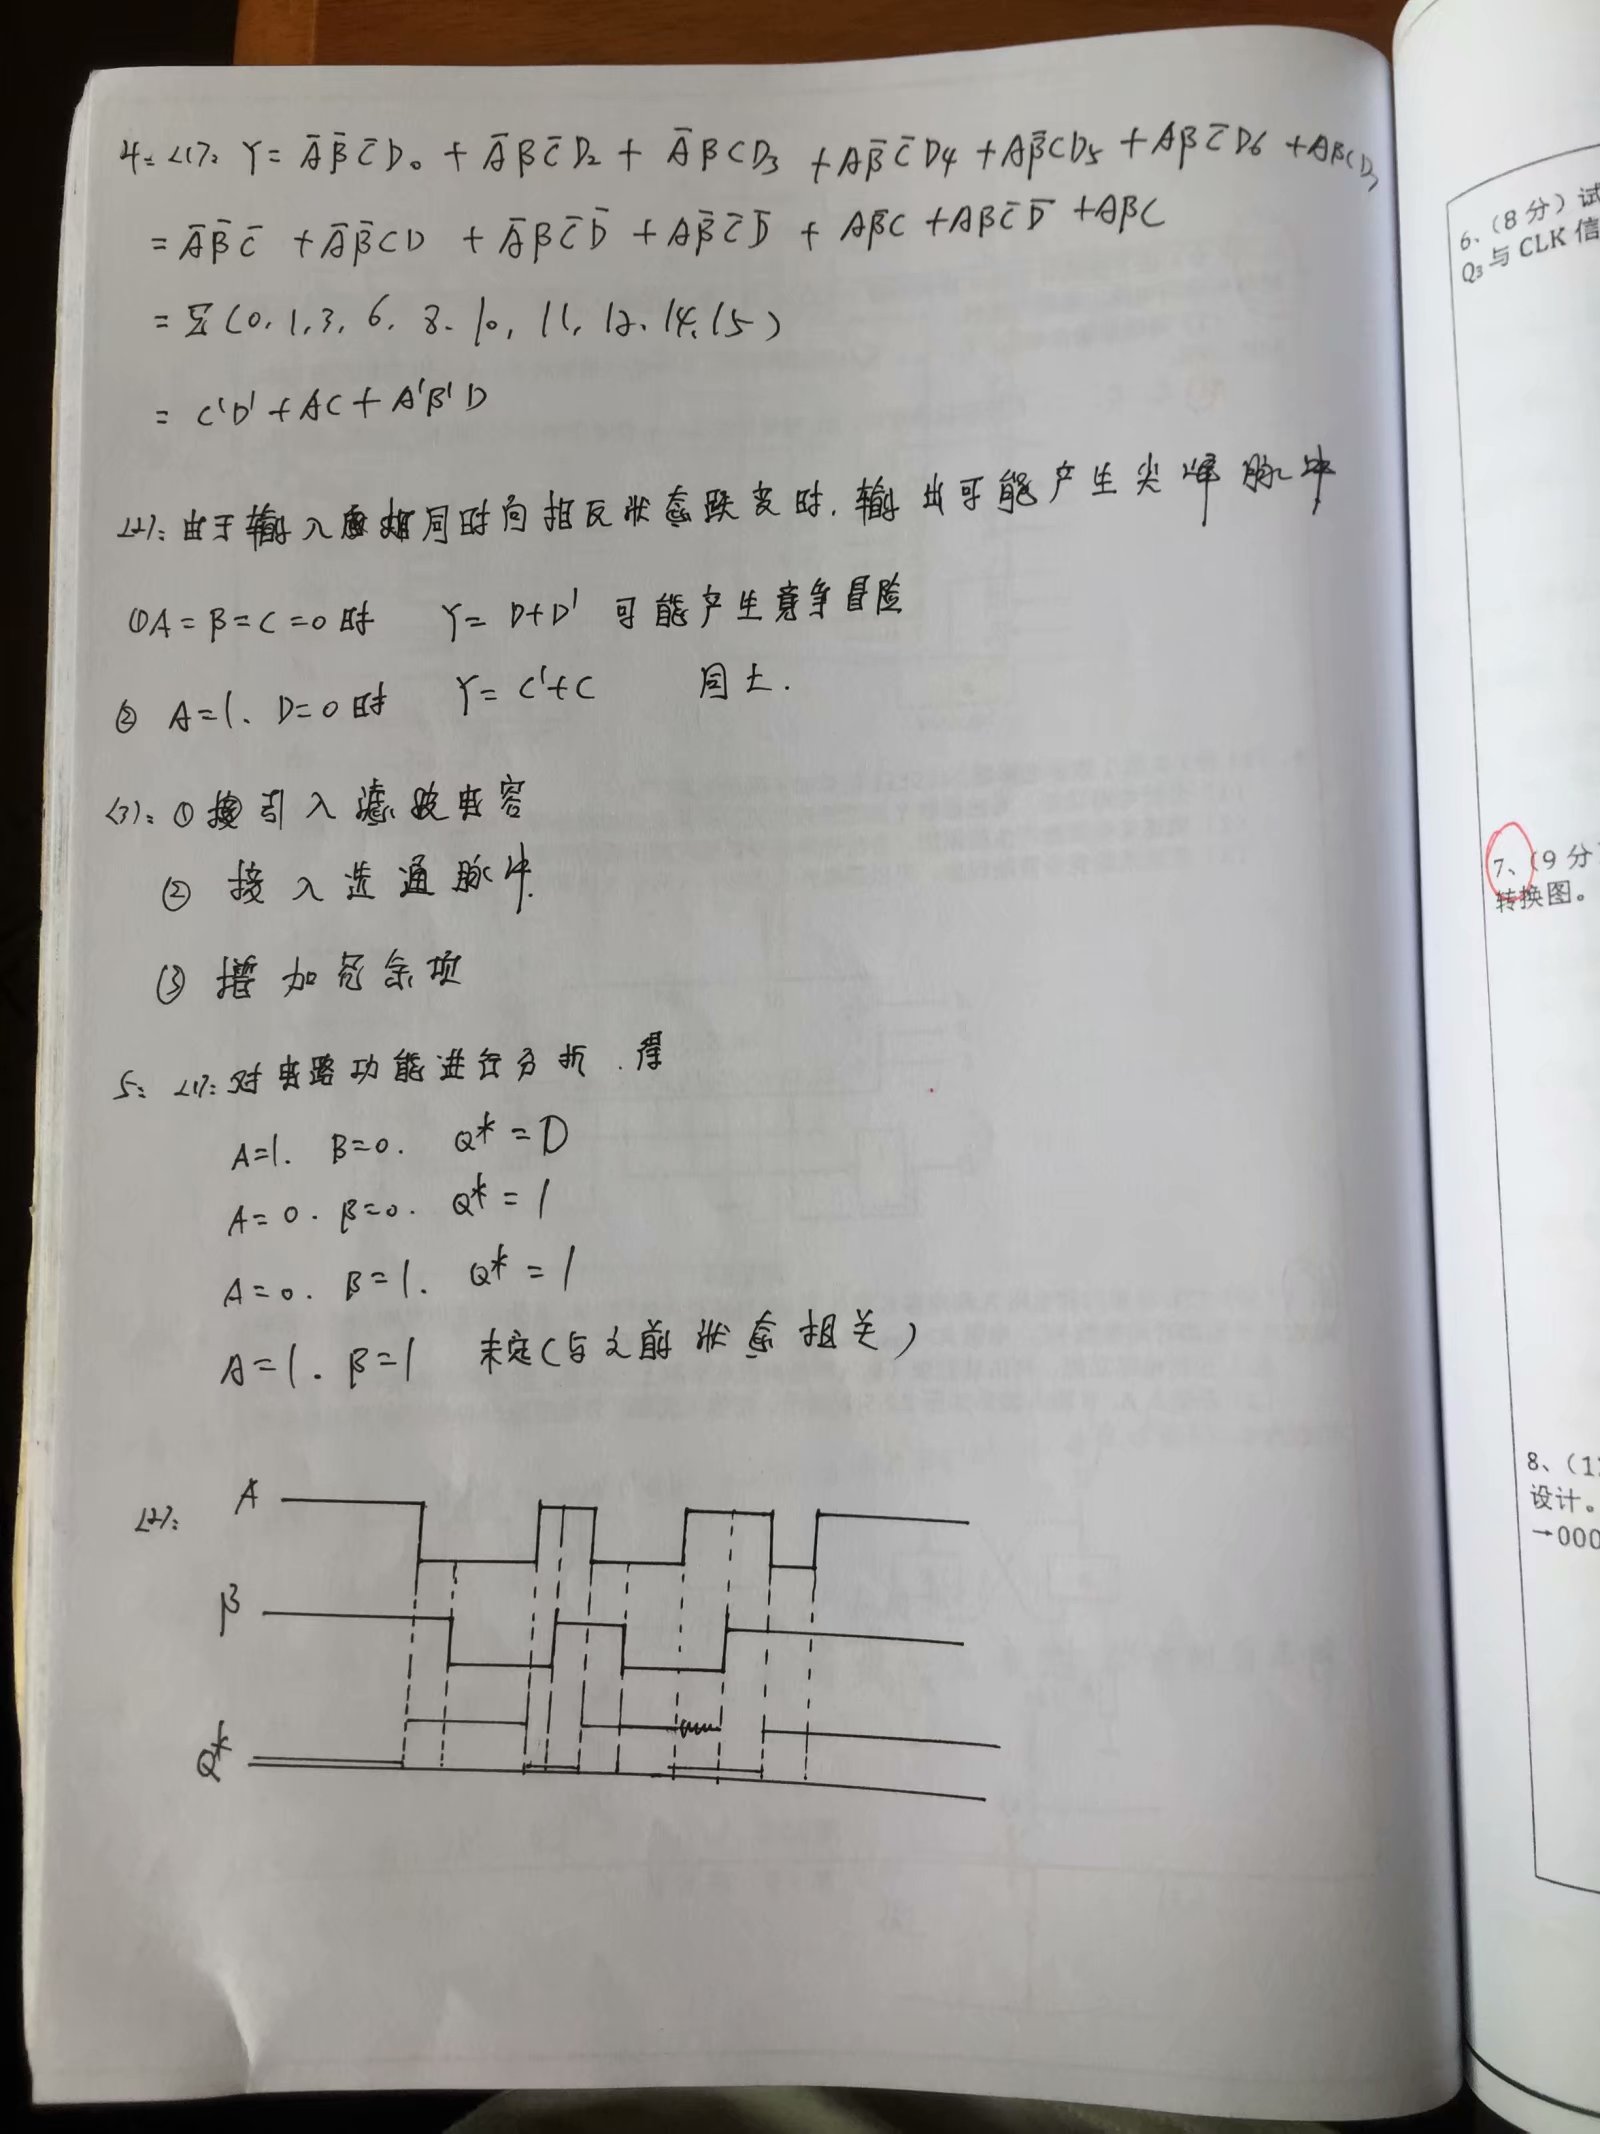 4: <1>: Y = A̅B̅C̅D₀ + A̅BC̅D₂ + A̅BCD₃ + AB̅C̅D4 + AB̅CD₅ + ABC̅D6 + ABCD₇
= A̅B̅C̅ + A̅B̅CD + A̅BC̅D̅ + AB̅C̅D̅ + AB̅C + ABC̅D̅ + ABC
= Σ(0, 1, 3, 6, 8, 10, 11, 12, 14, 15)
= C'D' + AC + A'B'D
<2>: 由于输入 同时向相反状态跃变时, 输出可能产生尖峰脉冲
①A=B=C=0时 Y= D+D' 可能产生竟争冒险
② A=1. D=0时 Y= C'+C 同上.
<3>: ① 引入滤波电容
② 接入选通脉冲.
③ 增加冗余项
5: <1>: 对电路功能进行分析. 得
A=1. B=0. Q* = D
A=0. B=0. Q* = 1
A=0. B=1. Q* = 1
A=1. B=1 未定(与之前状态相关)
<2>:
A
B
Q*
6、(8 分) 试
Q₃ 与 CLK 信
7、(9 分)
转换图。
8、(1
设计。
→000